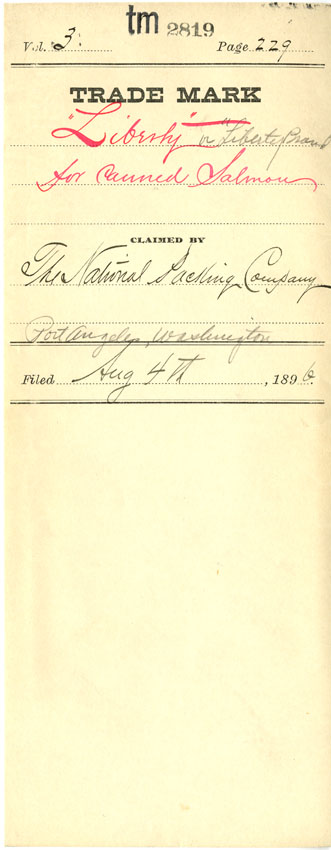 tm 2819
Vol. 3. Page 229
TRADE MARK
"Liberty" or "Liberty Brand
for canned Salmon
CLAIMED BY
The National Packing Company
Port Angeles, Washington
Filed Aug 4th, 1896